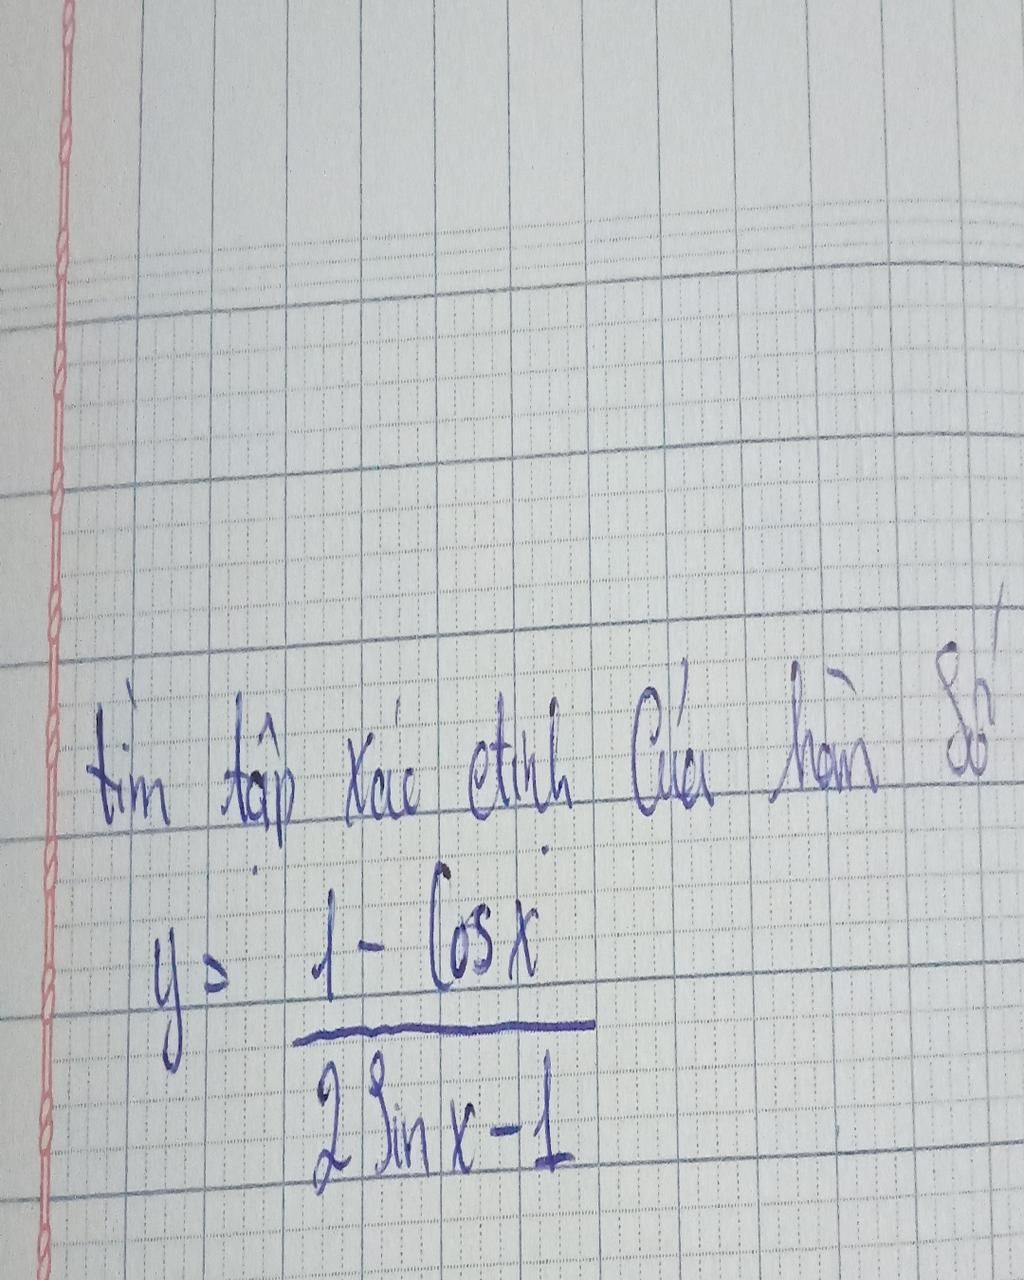 tìm tập xác định của hàm số
y = \frac{1 - Cos x}{2 Sin x - 1}